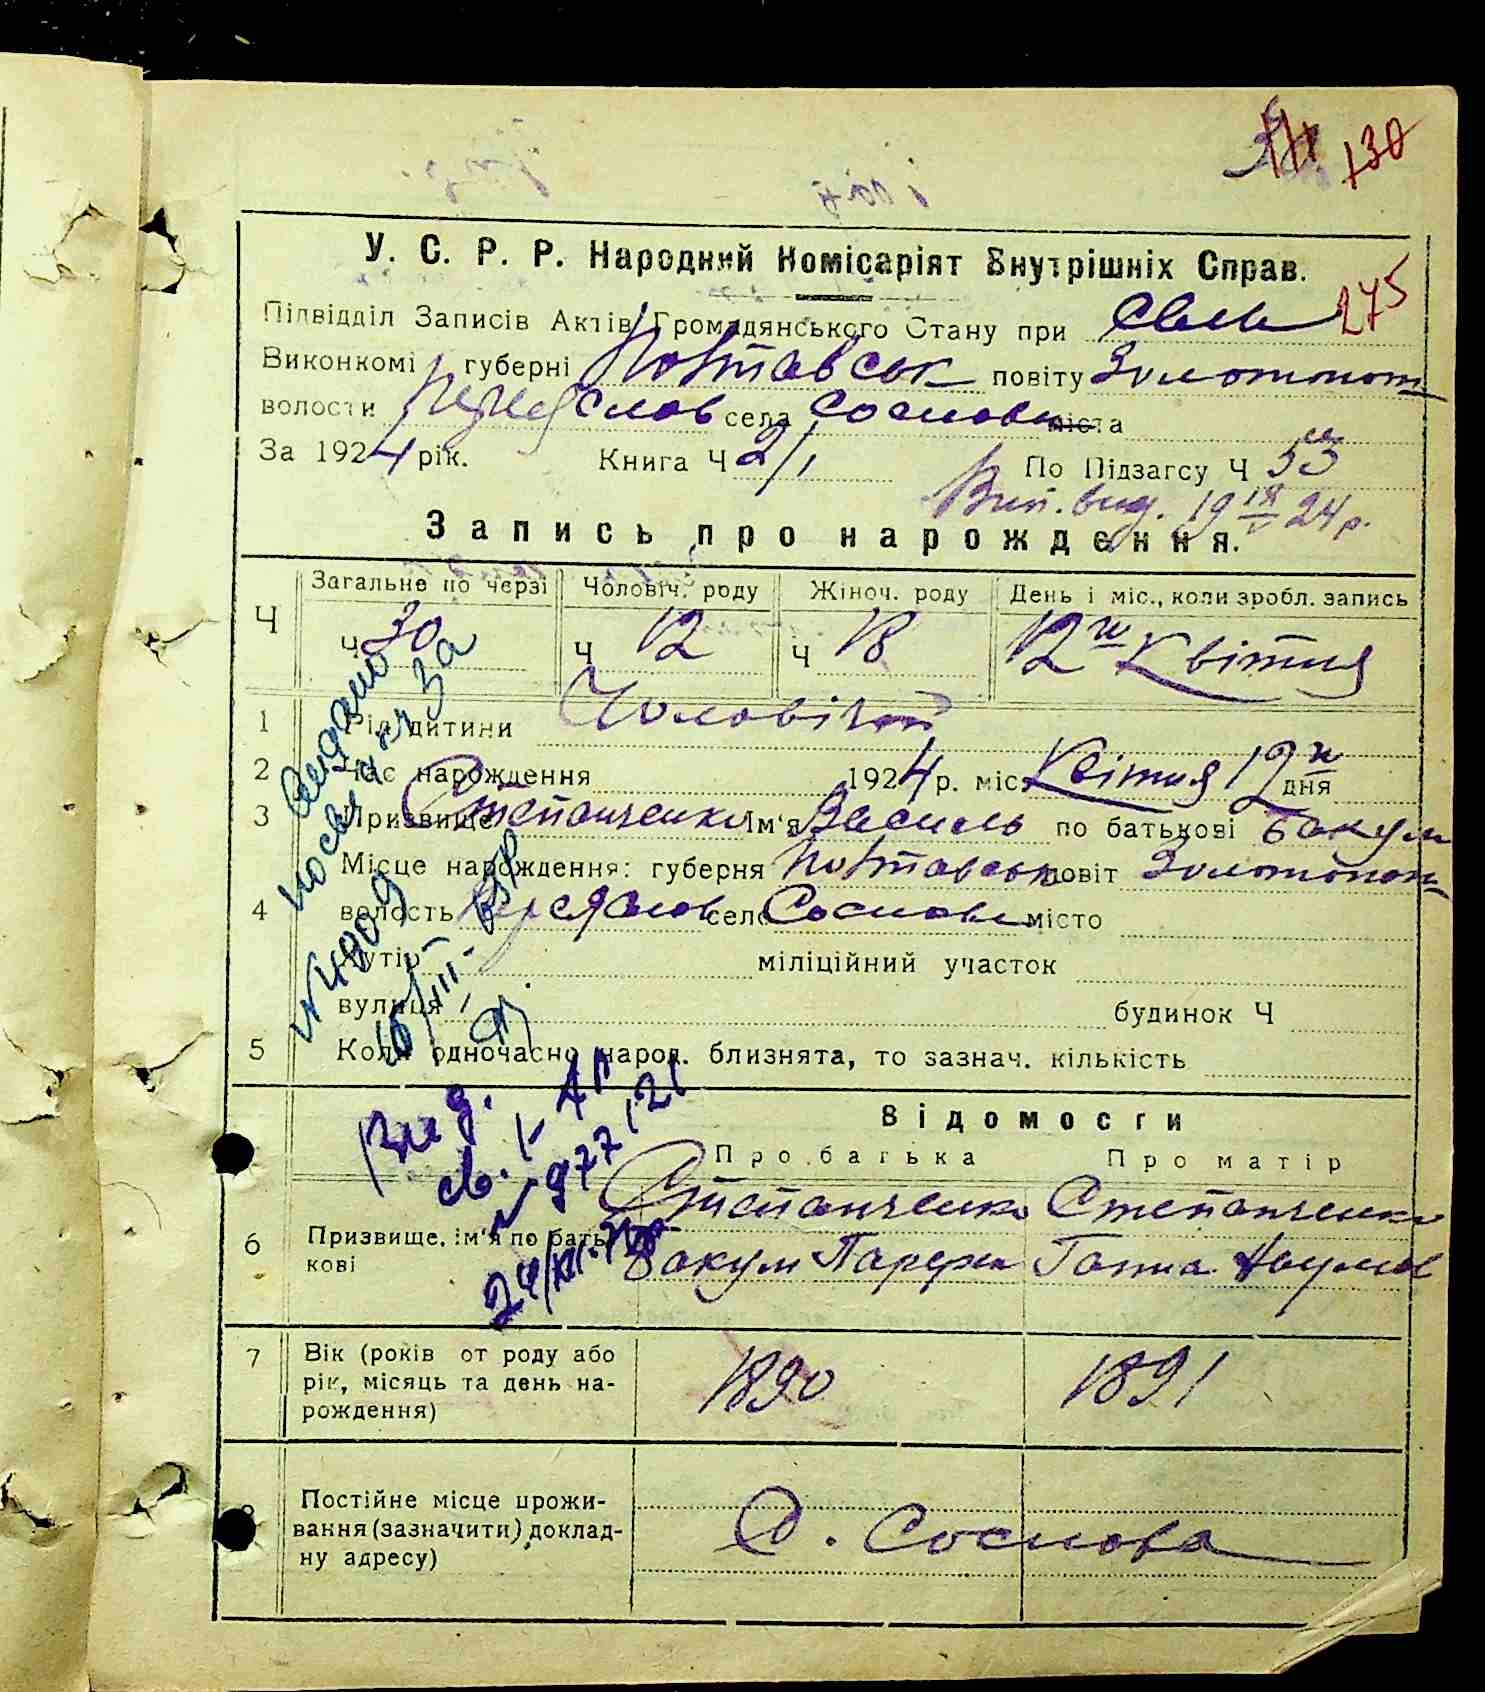 130
У. С. Р. Р. Народний Комісаріят Внутрішніх Справ.
275
Підвідділ Записів Актів Громадянського Стану при
Виконкомі губерні Полтавськ повіту Золотонош
волости Переяслов села Соснова міста
За 1924 рік. Книга Ч 2/1 По Підзагсу Ч 53
Вип. вид. 19 24 р.
Запись про народження.
Ч Загальне по черзі Чоловіч. роду Жіноч. роду День і міс., коли зробл. запись
Ч 30 Ч 12 Ч 18 12го Квітня
1 Пол дитини Чоловічий
2 Час народження 1924 р. міс. Квітня 12го дня
3 Призвище Степанченко Ім'я Василь по батькові Бакум
4 Місце народження: губерня Полтавськ повіт Золотонош
волость Переяслов село Соснова місто
хутір міліційний участок
вулиця будинок Ч
5 Коли одночасно народ. близнята, то зазнач. кількість
Видано
за
№ 4909
Вид.
св. I-АП
977121
Відомости
Про батька Про матір
6 Призвище, ім'я по батькові Степанченко Степанченко
Бакум Парфен Ганна Наумов
7 Вік (років от роду або рік, місяць та день народження) 1890 1891
8 Постійне місце прожи-
вання (зазначити) доклад-
ну адресу) С. Соснова